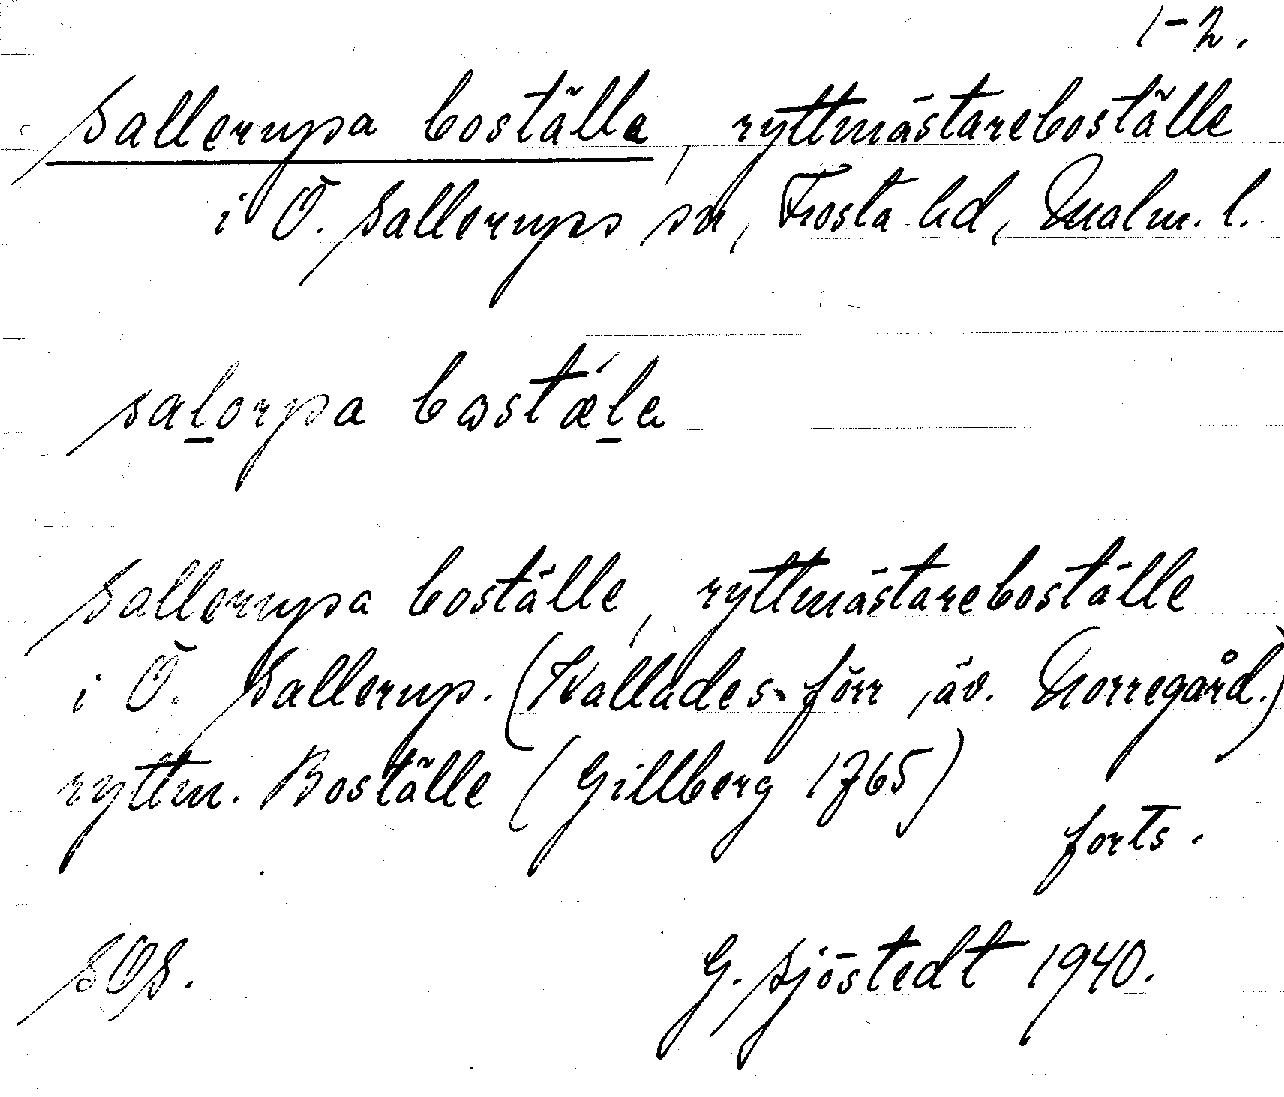 1-2.
Sallerupa boställe, ryttmästareboställe
i Ö. Sallerups sn, Frosta hd, Malm. l.
salorpa bostǽla
Sallerupa boställe, ryttmästareboställe
i Ö. Sallerup. (Kallades förr äv. Norregård.)
ryttm. Boställe (Gillberg 1765)
forts.
SOS.
G. Sjöstedt 1940.